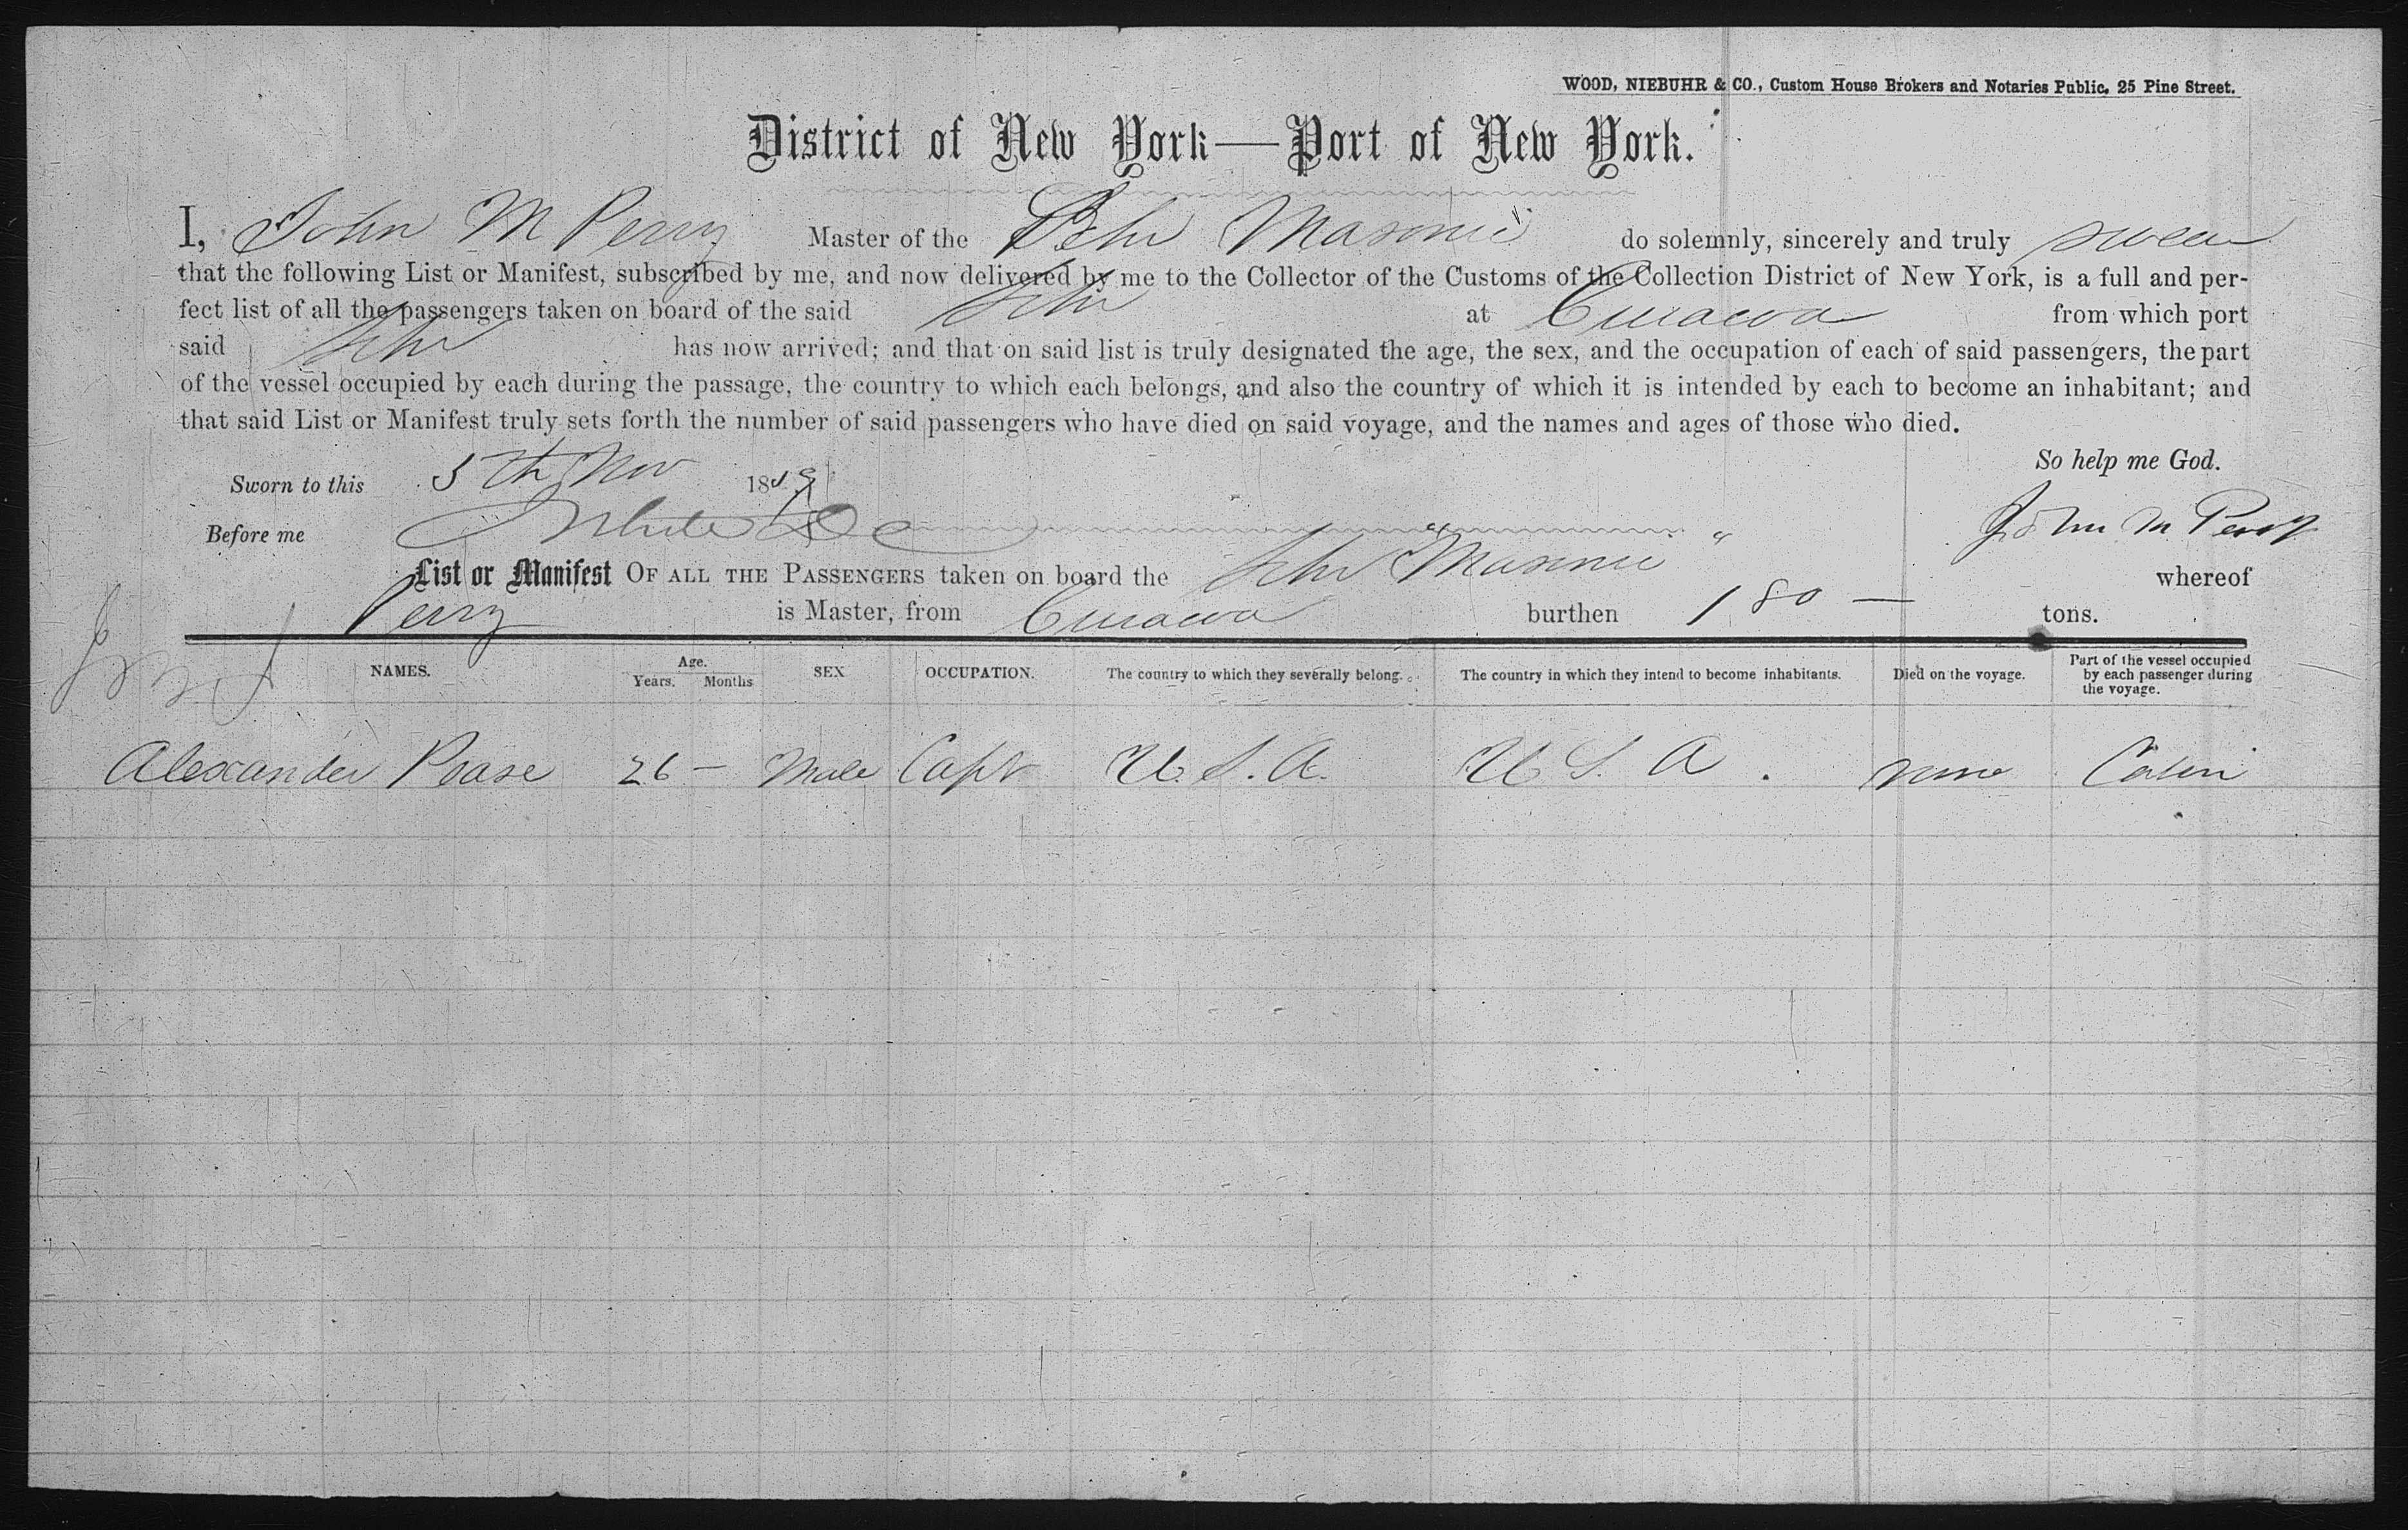 WOOD, NIEBUHR & CO., Custom House Brokers and Notaries Public, 25 Pine Street.
District of New York—Port of New York.
I, John M Perry Master of the Schr Masonic do solemnly, sincerely and truly swear
that the following List or Manifest, subscribed by me, and now delivered by me to the Collector of the Customs of the Collection District of New York, is a full and per-
fect list of all the passengers taken on board of the said Schr at Curacoa from which port
said Schr has now arrived; and that on said list is truly designated the age, the sex, and the occupation of each of said passengers, the part
of the vessel occupied by each during the passage, the country to which each belongs, and also the country of which it is intended by each to become an inhabitant; and
that said List or Manifest truly sets forth the number of said passengers who have died on said voyage, and the names and ages of those who died.
So help me God.
Sworn to this 5th Nov 1859
John M Perry
Before me
List or Manifest OF ALL THE PASSENGERS taken on board the Schr "Masonic" whereof
Perry is Master, from Curacoa burthen 180 — tons.
NAMES. Age. Years. Months SEX OCCUPATION. The country to which they severally belong. The country in which they intend to become inhabitants. Died on the voyage. Part of the vessel occupied by each passenger during the voyage.
Alexander Pease 26 — Male Capt U.S.A. U S. A. none Cabin